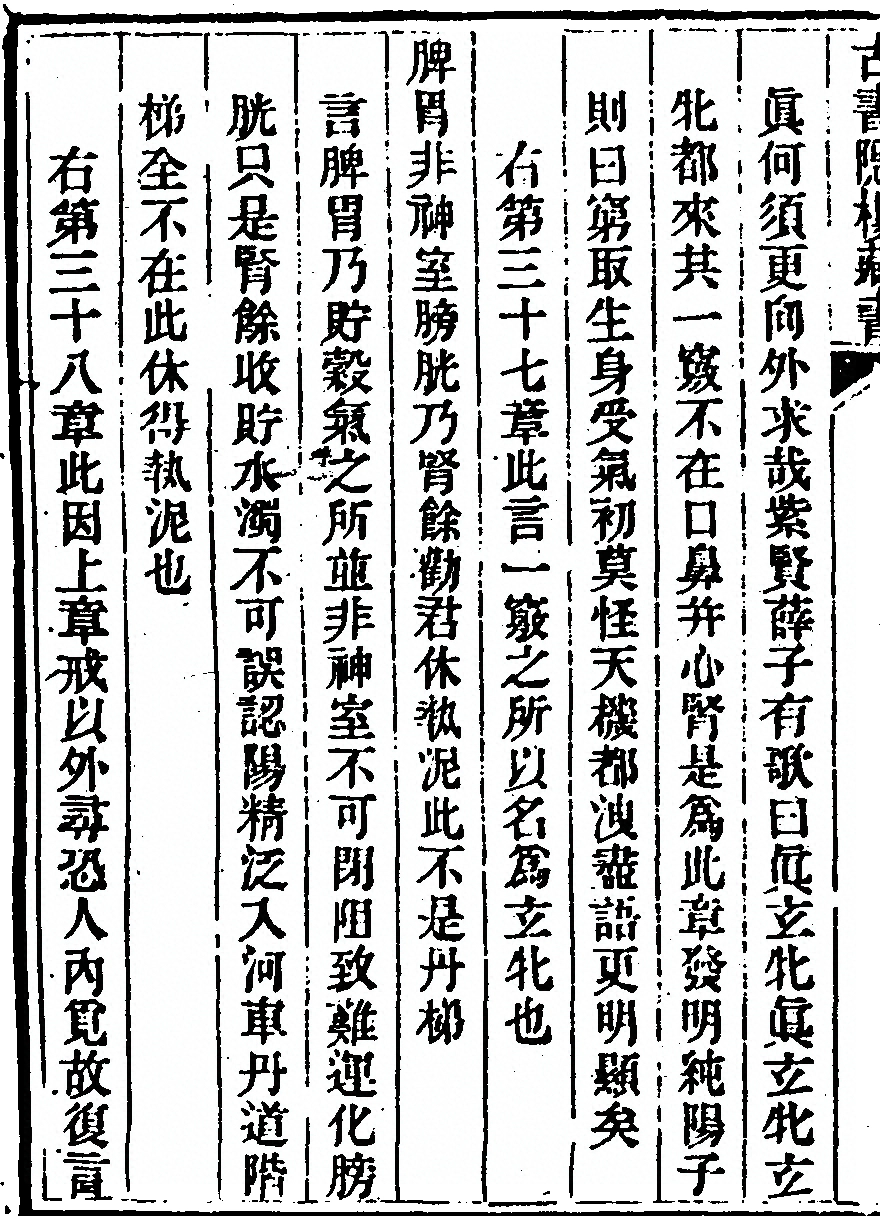 古書隱樓藏書
眞何須更向外求哉紫賢薛子有歌曰眞立牝眞立牝立
牝都來共一竅不在口鼻幷心腎是爲此章發明純陽子
則曰窮取生身受氣初莫怪天機都洩盡語更明顯矣
右第三十七章此言一竅之所以名爲立牝也
脾胃非神室膀胱乃腎餘勸君休執泥此不是丹梯
言脾胃乃貯穀氣之所並非神室不可閉阻致難運化膀
胱只是腎餘收貯水濁不可誤認陽精泛入河車丹道階
梯全不在此休得執泥也
右第三十八章此因上章戒以外尋恐人內覓故復言